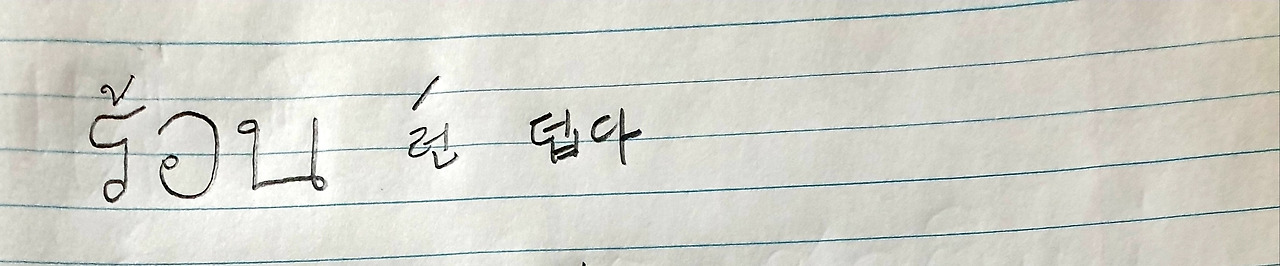 ร้อน 런 덥다